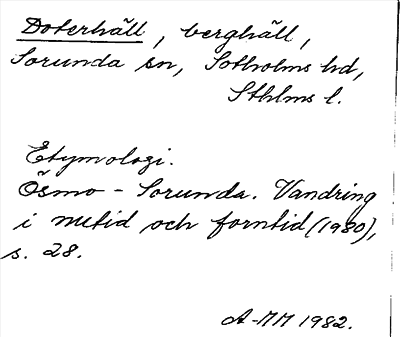 Doterhäll, berghäll,
Sorunda sn, Sotholms hd,
Sthlms l.
Etymologi.
Ösmo - Sorunda. Vandring
i nutid och forntid (1980),
s. 28.
A-MM 1982.